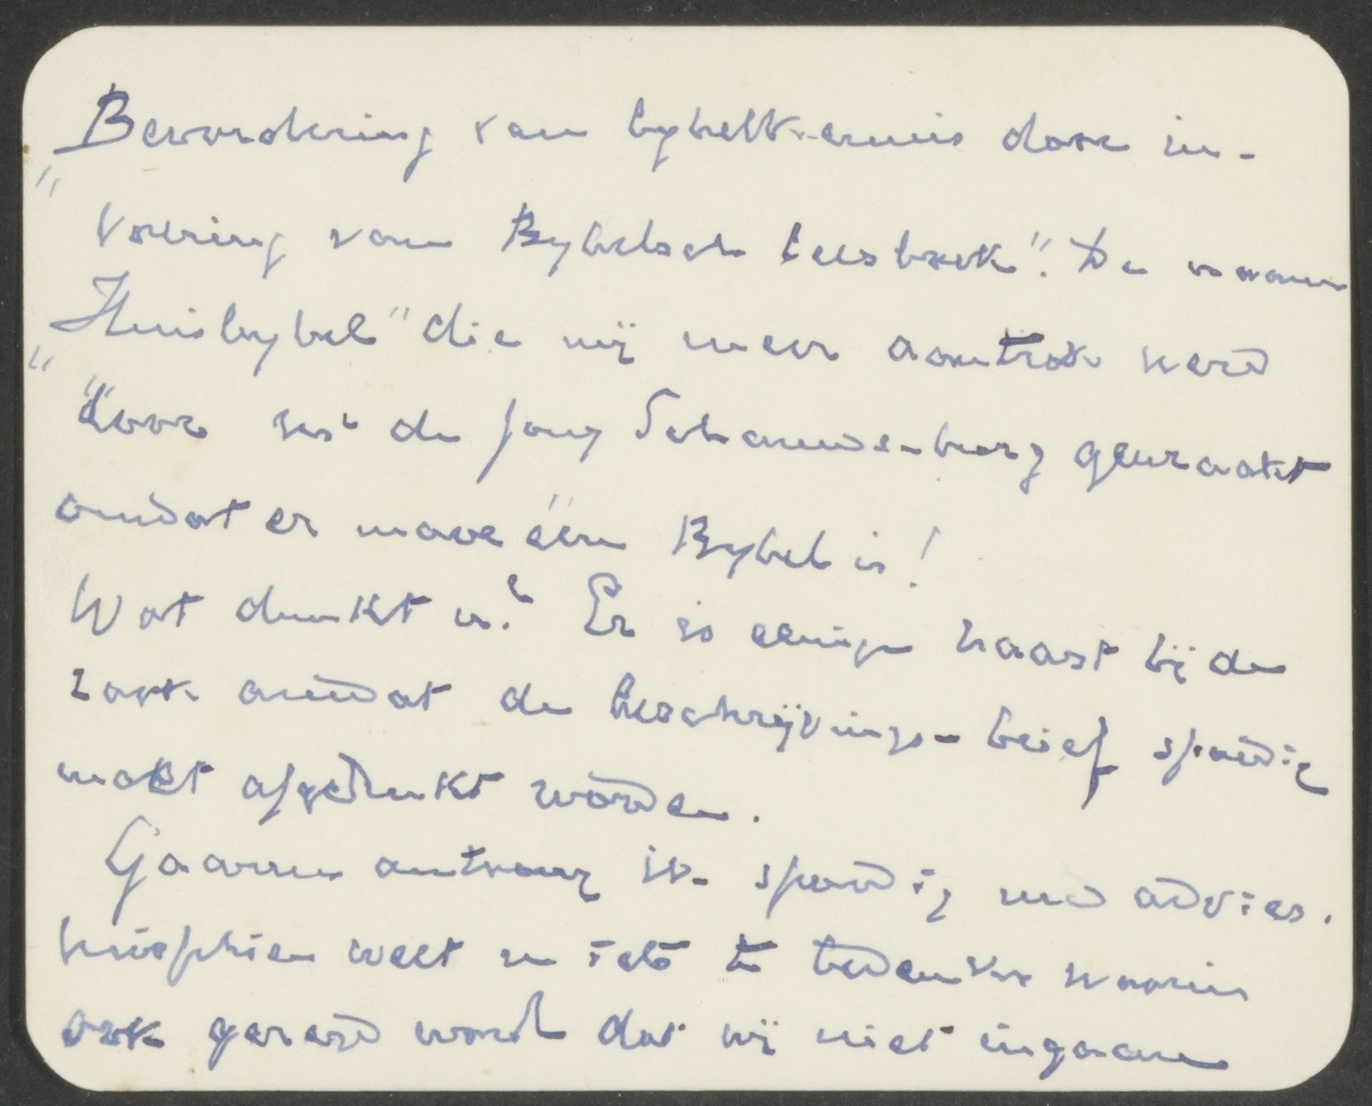 „Bevordering van bybelkennis door in-
voering van Bybelsch leesboek". De naam
„Huisbybel" die mij meer aantrok werd
door ds de Jong Schouwenburg gewraakt
omdat er maar één Bybel is!
Wat dunkt u? Er is eenige haast bij de
zaak omdat de beschrijvings-brief spoedig
moet afgedrukt worden.
Gaarne ontvang ik spoedig uw advies.
Misschien weet u iets te bedenken waarin
ook gezegd wordt dat wij niet ingaan